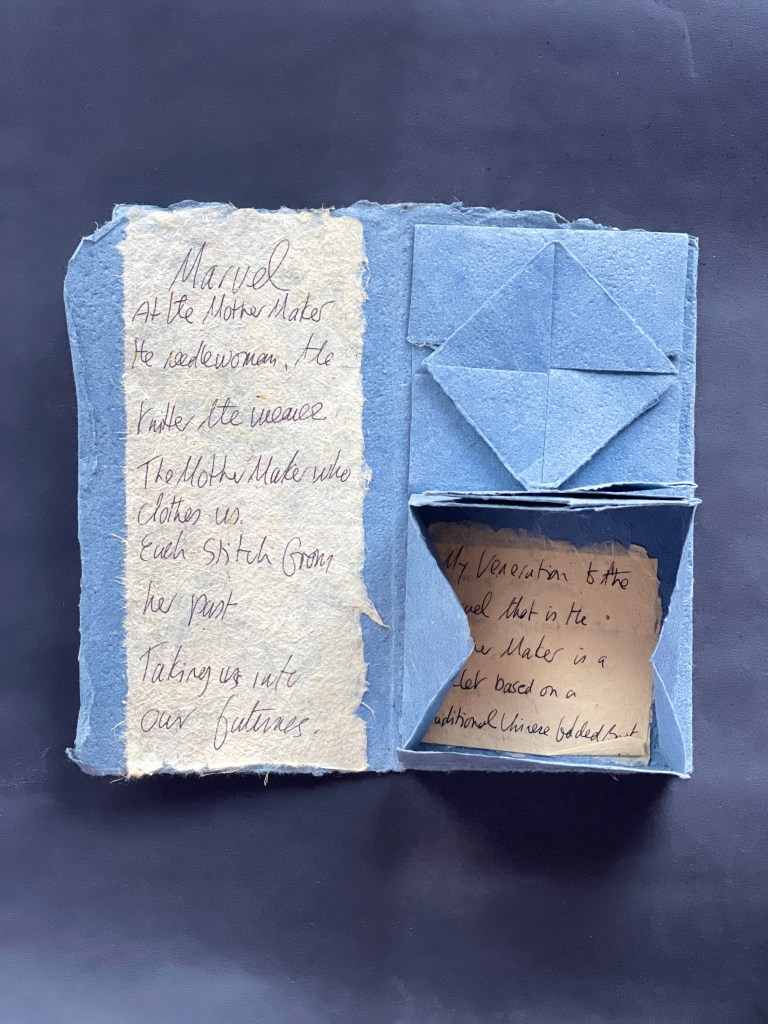 Marvel
At the Mother Maker
the needlewoman, the
knitter the weaver
The Mother Maker who
clothes us.
Each Stitch from
her past
Taking us into
our futures.
My Veneration to the
vel that is the
her Maker is a
based on a
aditional Chinese folded